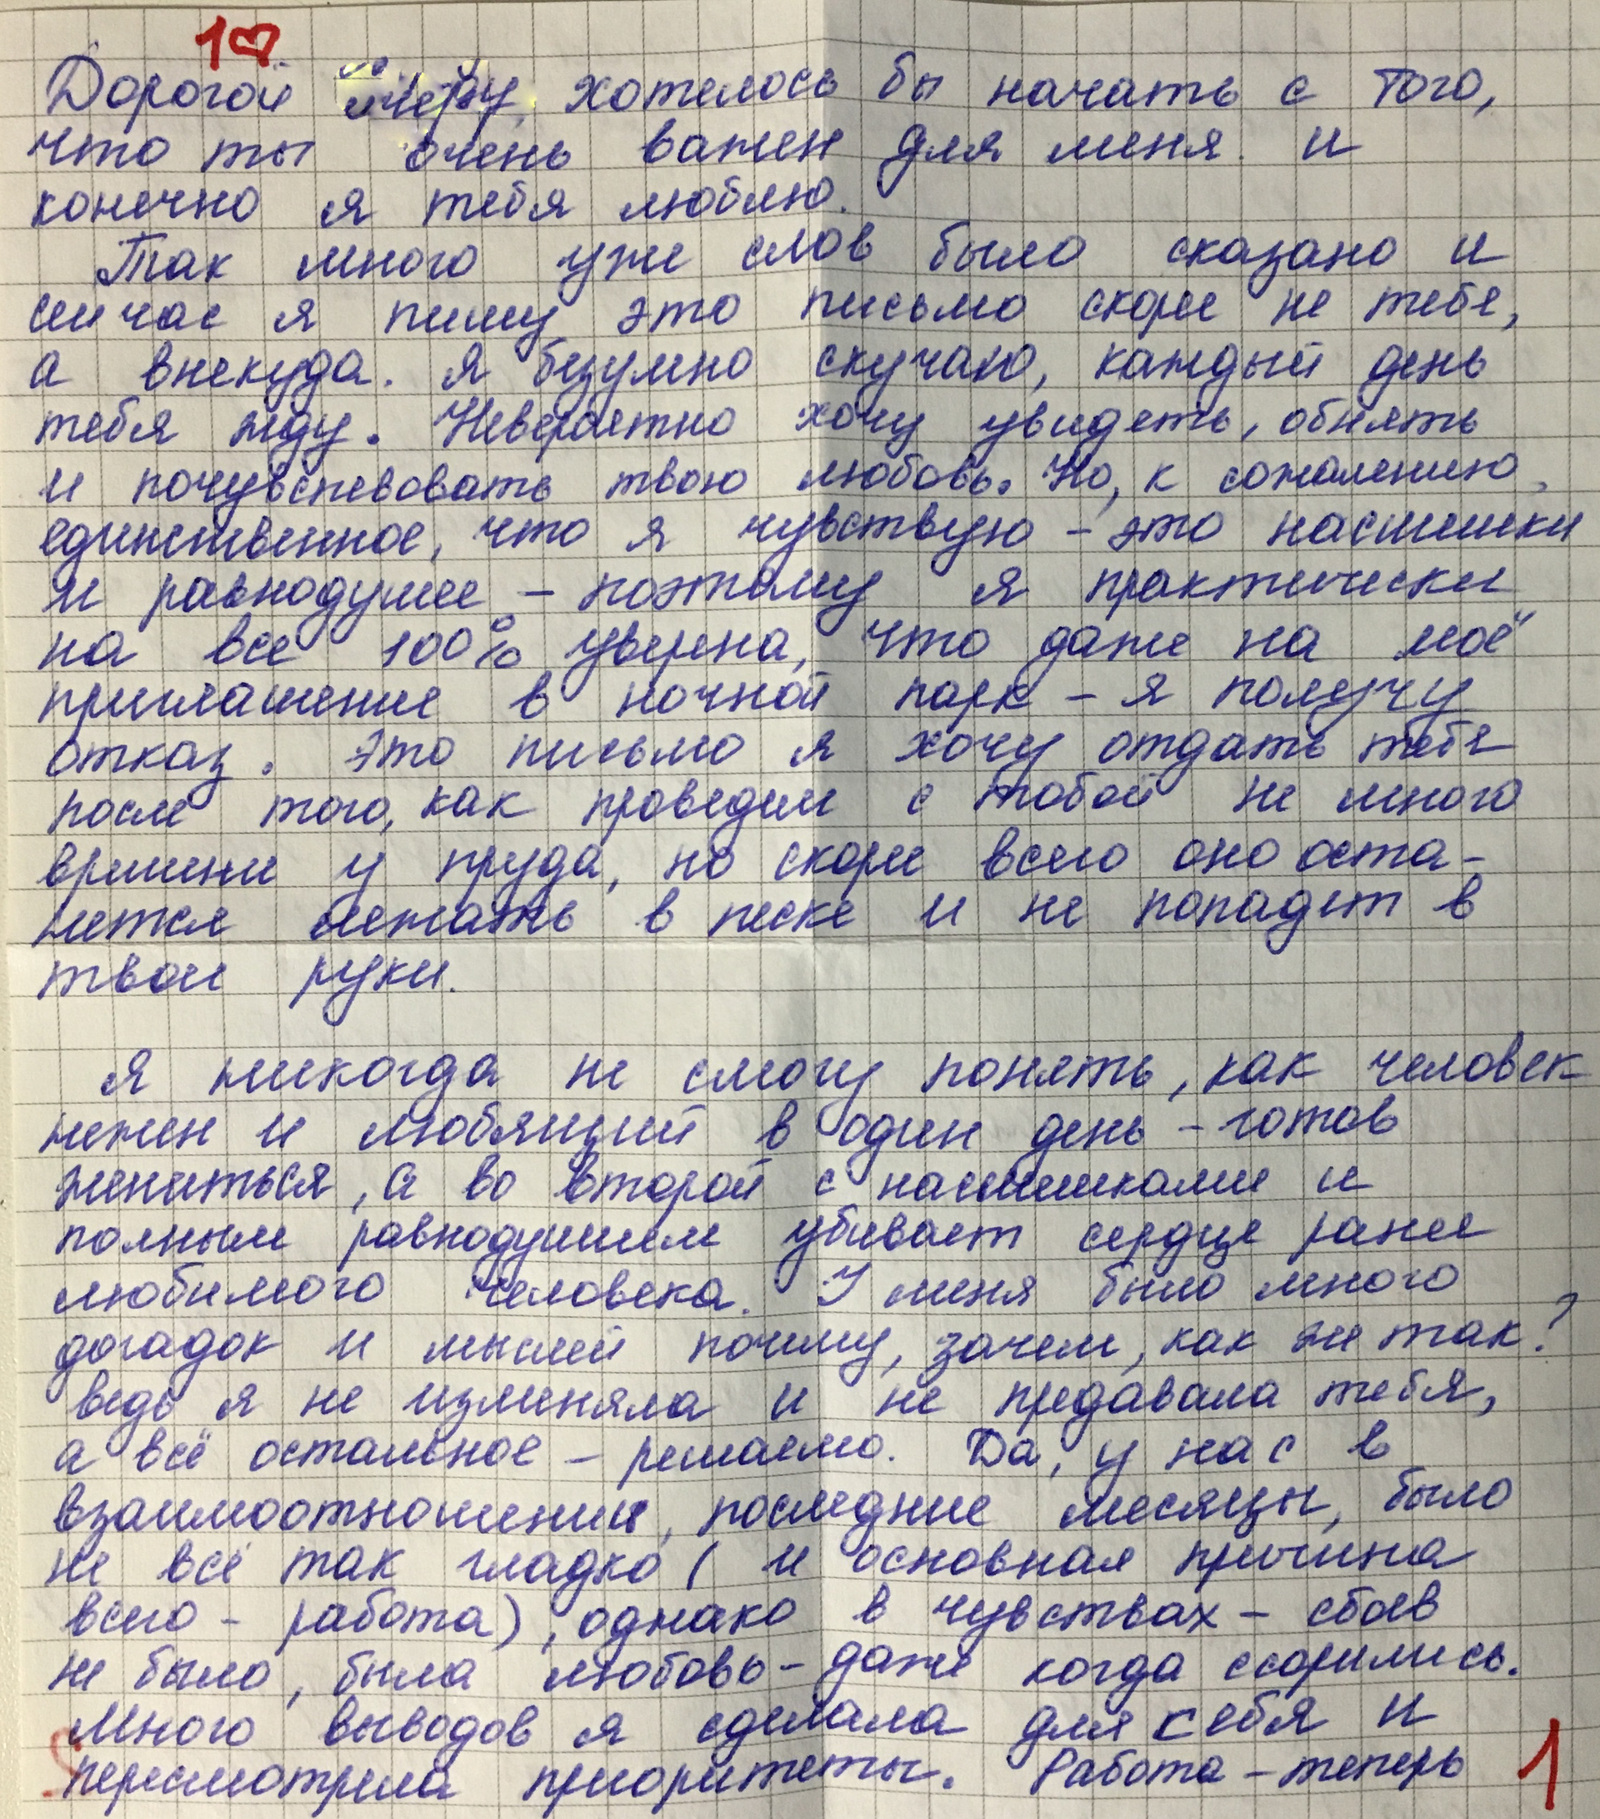 1
Дорогой хотелось бы начать с того,
что ты очень важен для меня. и
конечно я тебя люблю.
Так много уже слов было сказано и
сейчас я пишу это письмо скорее не тебе,
а внекуда. Я безумно скучаю, каждый день
тебя жду. Невероятно хочу увидеть, обнять
и почувствовать твою любовь. Но, к сожалению,
единственное, что я чувствую - это насмешки
и равнодушее - поэтому я практически
на все 100% уверена, что даже на моё
приглашение в ночной парк - я получу
отказ. Это письмо я хочу отдать тебе
после того, как проведем с тобой не много
времени у пруда, но скорее всего оно оста-
нется лежать в песке и не попадет в
твои руки.
Я никогда не смогу понять, как человек
нежен и любящий в один день - готов
жениться, а во второй с насмешками и
полным равнодушием убивает сердце ранее
любимого человека. У меня было много
догадок и мыслей почему, зачем, как же так?
ведь я не изменяла и не предавала тебя,
а всё остальное - решаемо. Да, у нас в
взаимоотношении, последние месяцы, было
не всё так гладко (и основная причина
всего - работа), однако в чувствах - сбоев
не было, была любовь - даже когда ссорились.
Много выводов я сделала для себя и
пересмотрела приоритеты. Работа - теперь
1